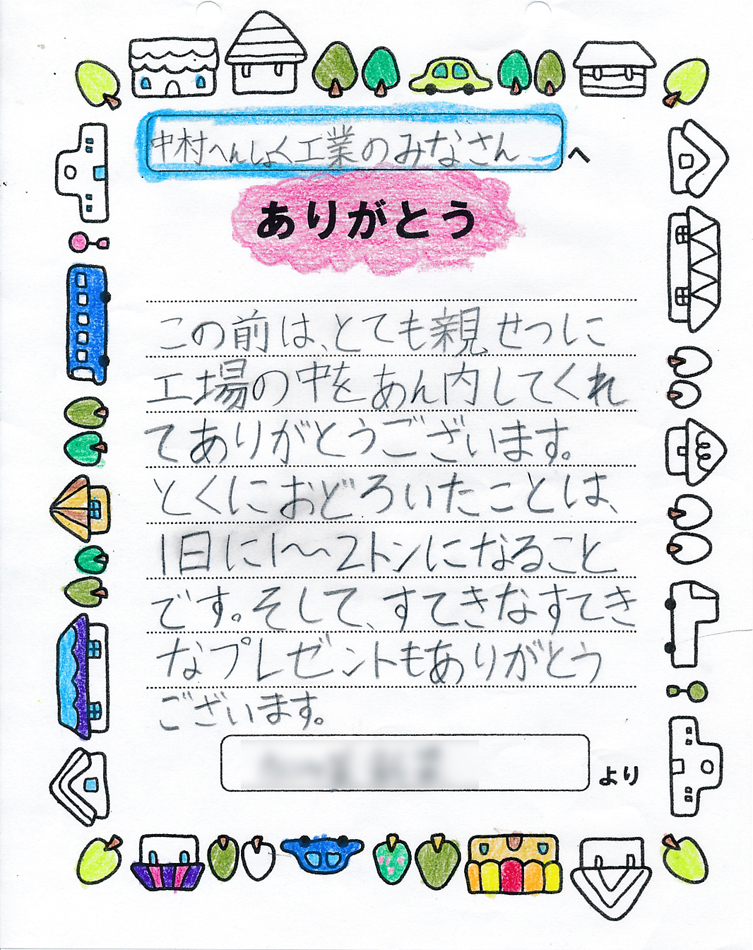 中村へんしょく工業のみなさん へ
ありがとう
この前は、とても親せつに
工場の中をあん内してくれ
てありがとうございます。
とくにおどろいたことは、
1日に1〜2トンになること
です。そして、すてきなすてき
なプレゼントもありがとう
ございます。
より